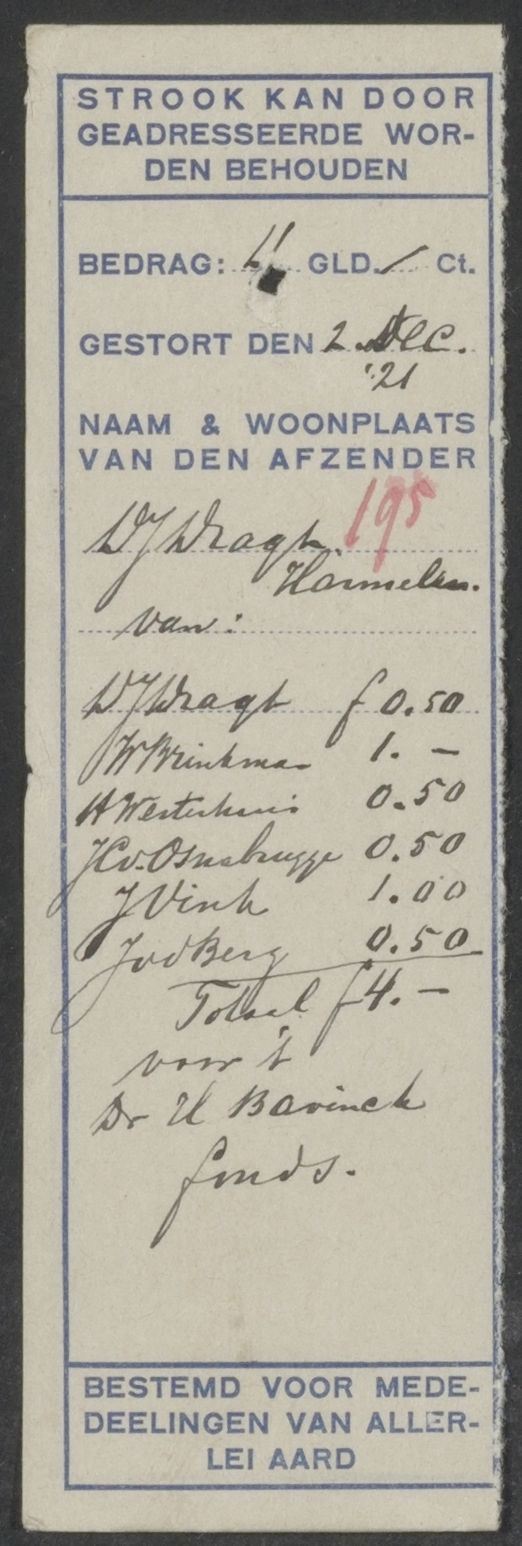 STROOK KAN DOOR
GEADRESSEERDE WOR-
DEN BEHOUDEN
BEDRAG: 4 GLD. / Ct.
GESTORT DEN 2 Dec.
'21
NAAM & WOONPLAATS
VAN DEN AFZENDER
195
WJ Dragt.
Harmelen.
van:
WJ Dragt f 0.50
W Brinkman 1. -
H Westerhuis 0.50
JC v. Osnabrugge 0.50
J Vink 1.00
J v d Berg 0.50
Totaal f 4. -
voor 't
Dr H Bavinck
fonds.
BESTEMD VOOR MEDE-
DEELINGEN VAN ALLER-
LEI AARD